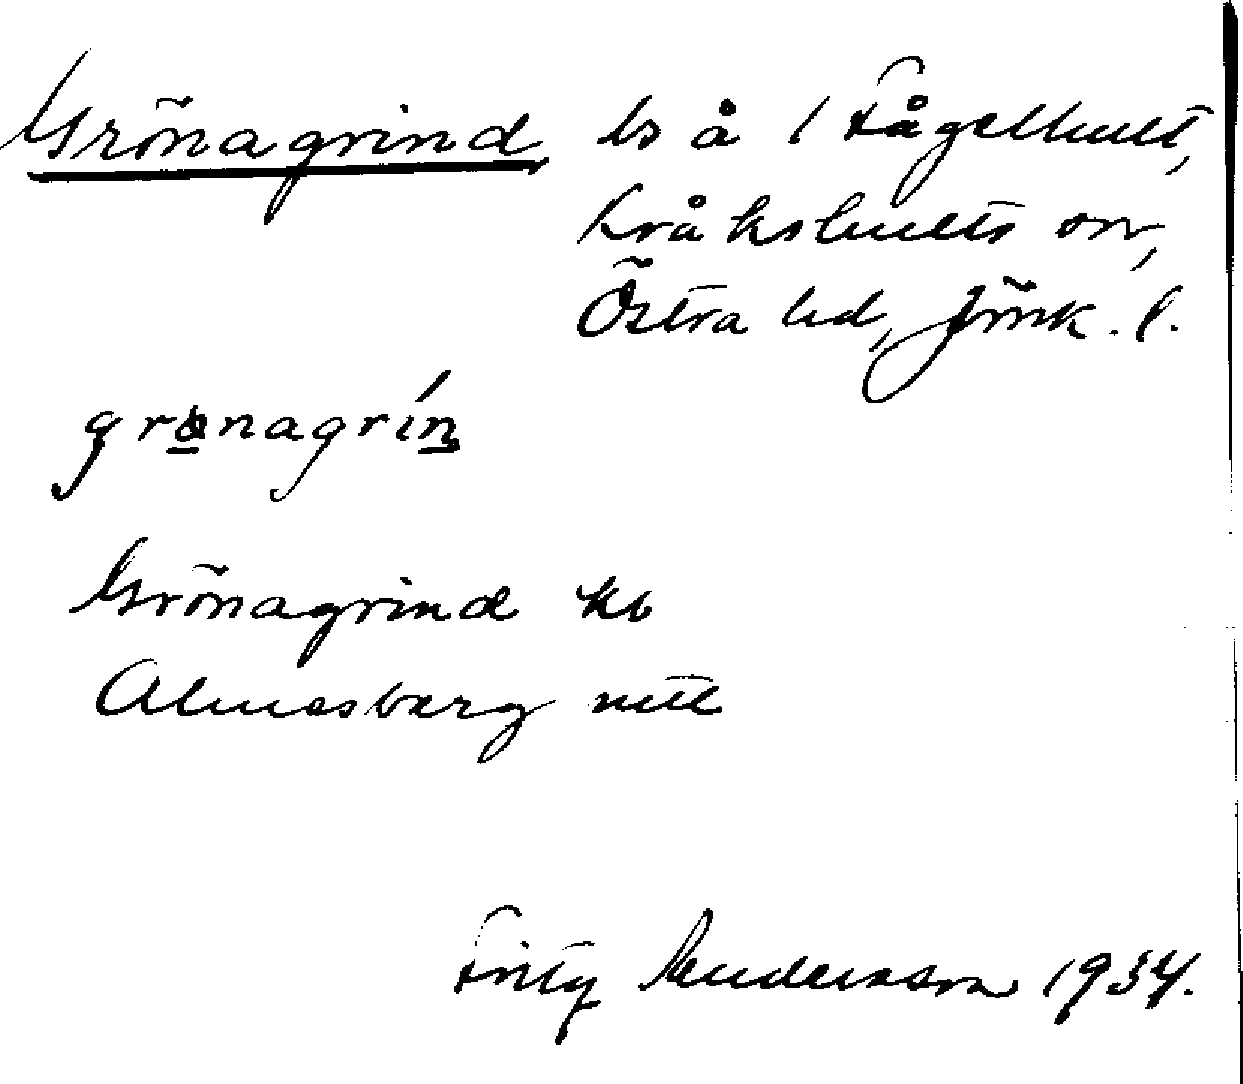 Grönagrind bs å 1 Fågelhult,
Kråkshults sn,
Östra hd, Jönk. l.
grönagrín
Grönagrind kb
Almesberg mtl
Fritz Andersson 1934.